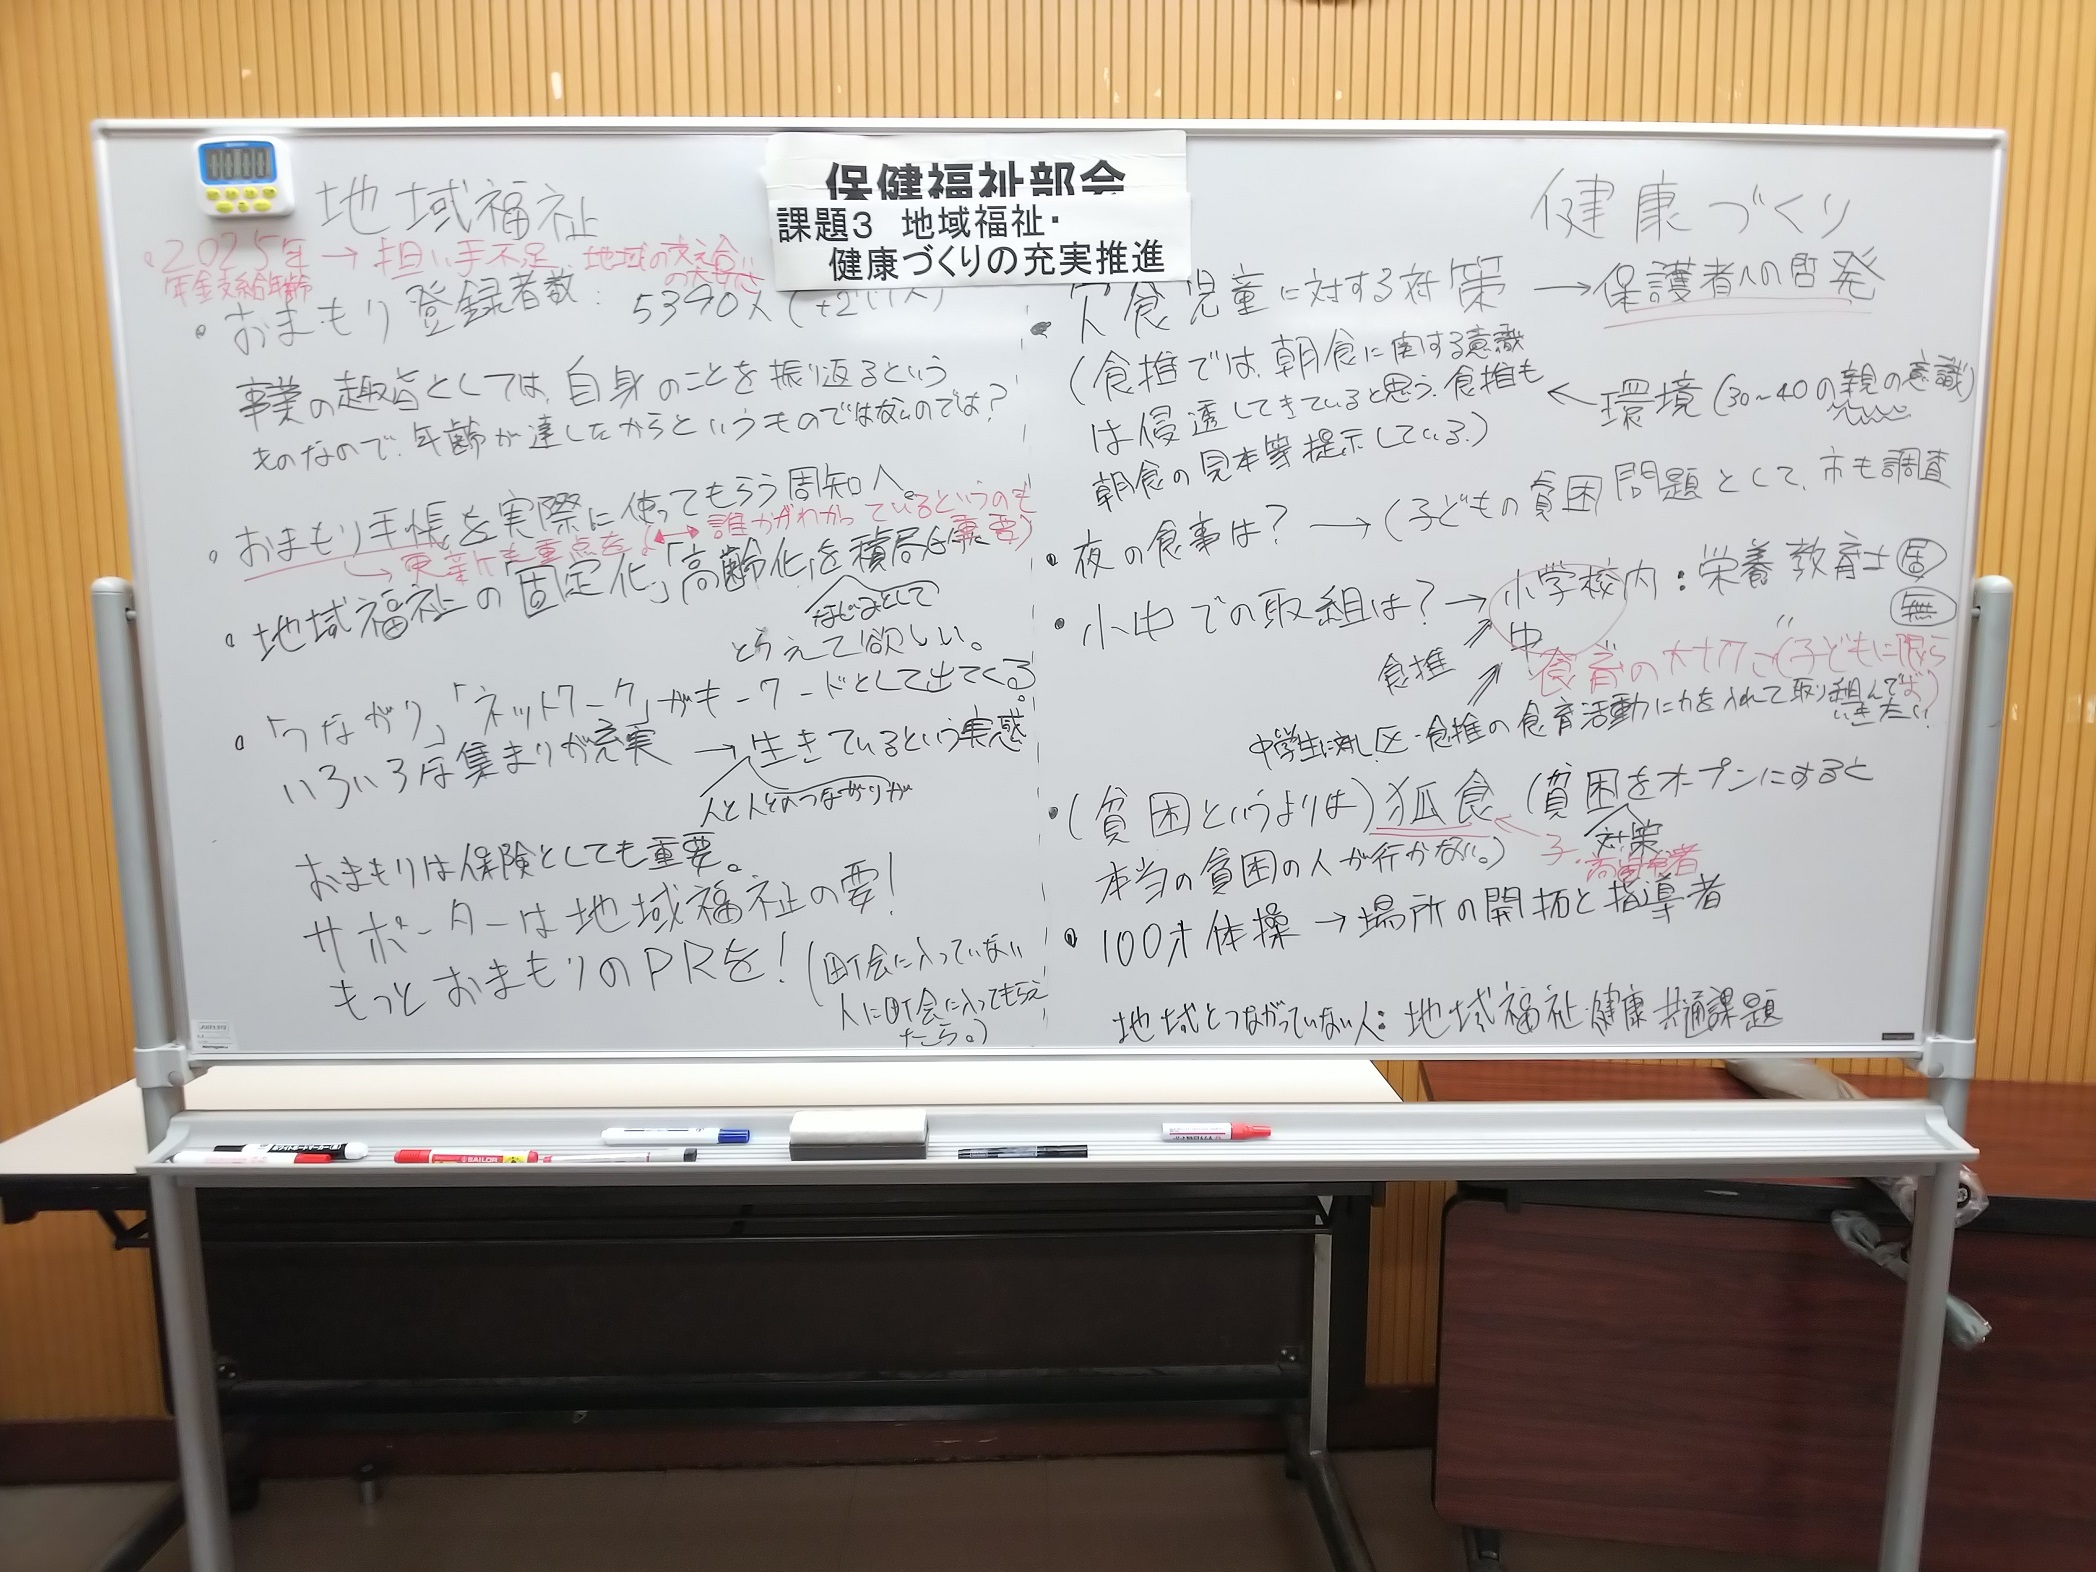 00:00
保健福祉部会
課題3 地域福祉・
健康づくりの充実推進
地域福祉
・2025年→担い手不足 地域の支え合い
の大切さ
年金支給年齢
・おまもり登録者数: 5390人(+2
事業の趣旨としては、自身のことを振り返るという
ものなので、年齢が達したからというものではないのでは?
・おまもり手帳を実際に使ってもらう周知へ。
→更新にも重点を(↔誰かがわかっているというのも重要)
・地域福祉の「固定化」「高齢化」を積局な
なじみとして
とらえて欲しい。
・「つながり」「ネットワーク」がキーワードとして出てくる。
いろいろな集まりが充実 →生きているという実感
人と人とのつながりが
おまもりは保険としても重要。
サポーターは地域福祉の要!
もっとおまもりのPRを!(町会に入っていない
人に町会に入ってもらえ
たら。)
健康づくり
・欠食児童に対する対策 →保護者への啓発
(食推では、朝食に関する意識
は侵透してきていると思う。食推も
朝食の見本等提示している。)
←環境(30~40の親の意識)
・夜の食事は? →(子どもの貧困問題として、市も調査
・小中での取組は?→小学校内:栄養教育士
中 〃 無
食推
食育の大切さ(子どもに限らず)
中学生に対し、区・食推の食育活動に力を入れて取り組んで
いきたい。
・(貧困というよりは)狐食 (貧困をオープンにすると
対策
本当の貧困の人が行かない。)
子・高齢者
・100才体操→場所の開拓と指導者
地域とつながっていない人:地域福祉・健康 共通課題